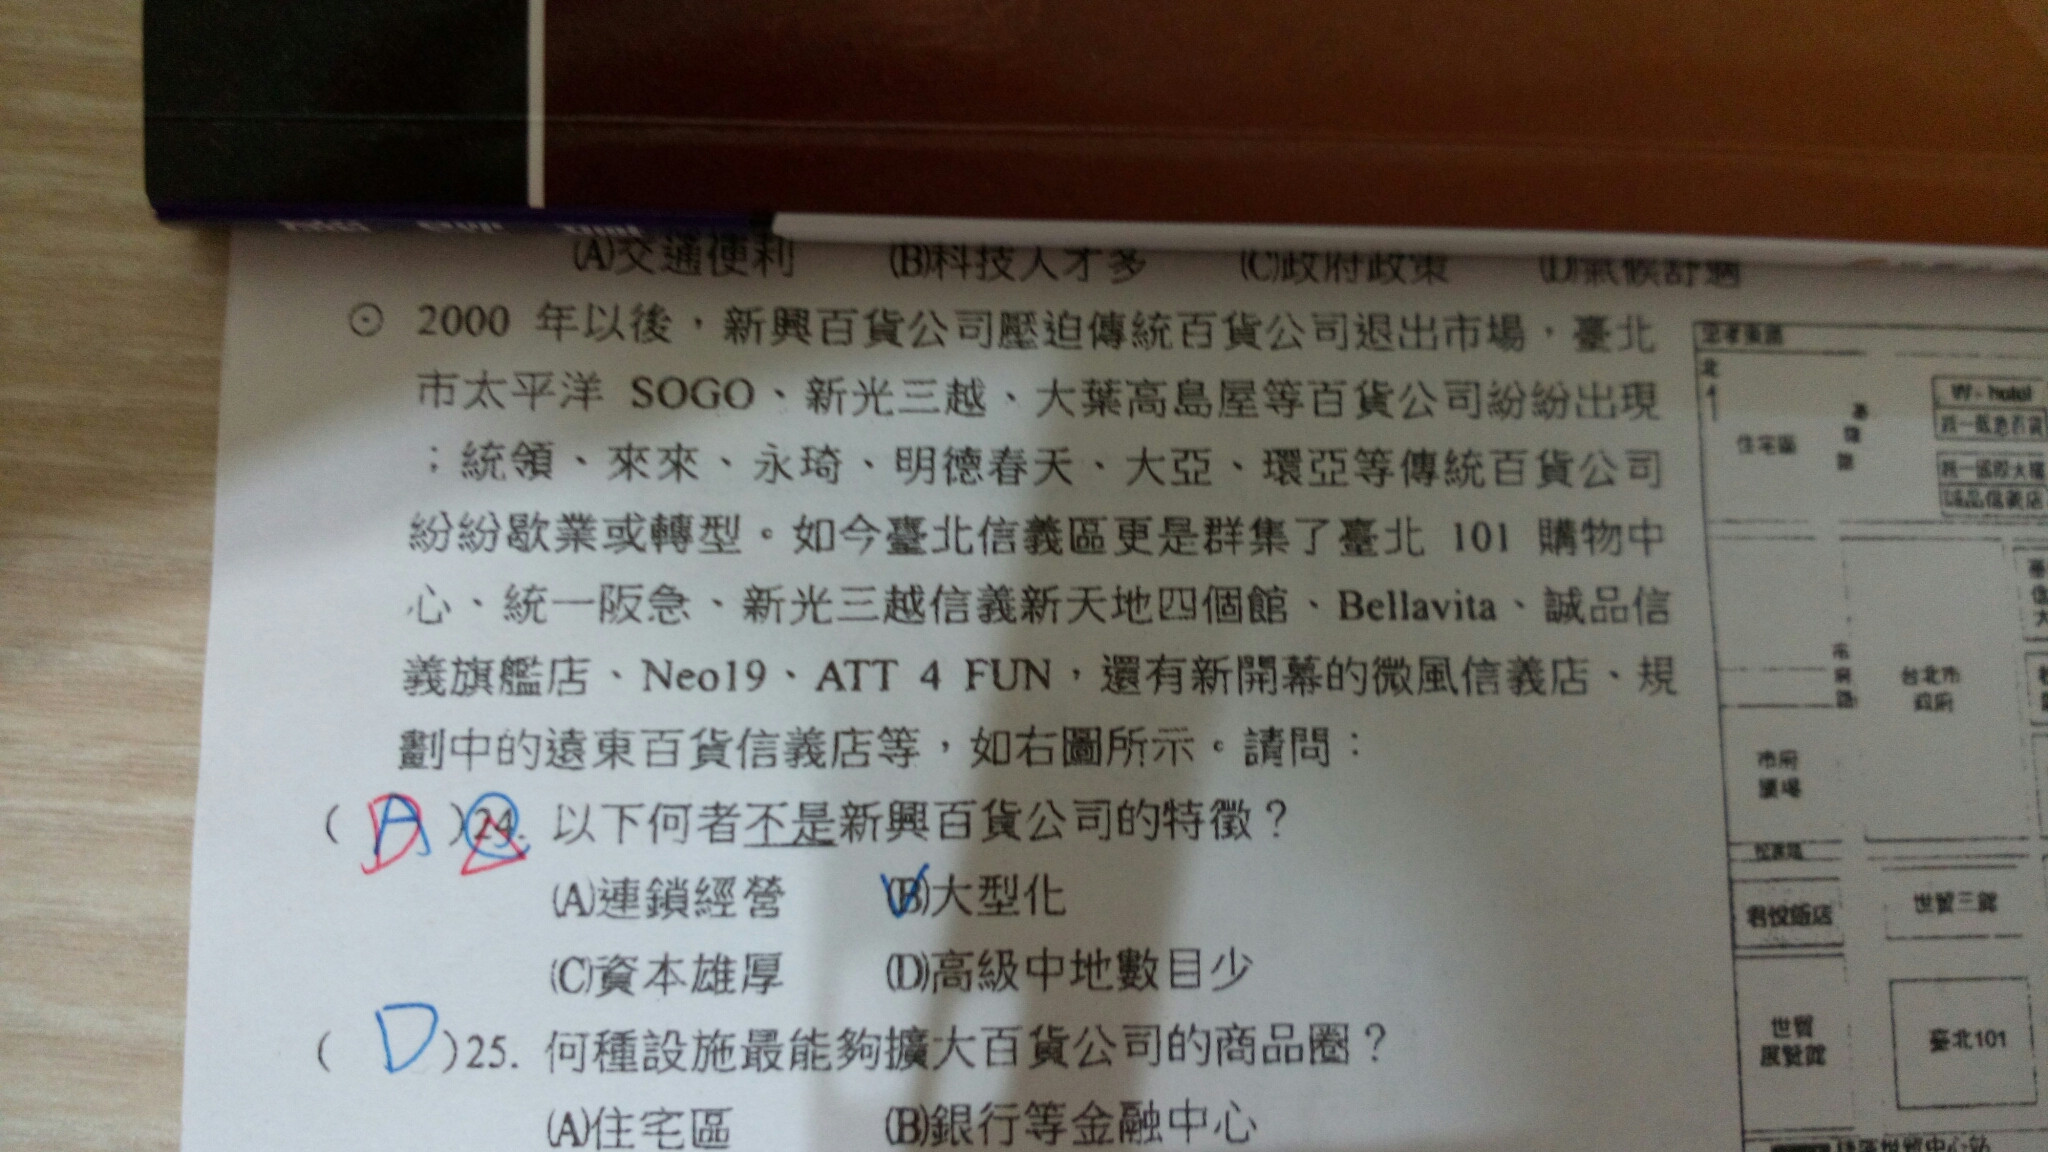 (A)交通便利 (B)科技人才多 (C)政府政策 (D)氣候舒適
⊙ 2000 年以後，新興百貨公司壓迫傳統百貨公司退出市場，臺北
市太平洋 SOGO、新光三越、大葉高島屋等百貨公司紛紛出現
；統領、來來、永琦、明德春天、大亞、環亞等傳統百貨公司
紛紛歇業或轉型。如今臺北信義區更是群集了臺北 101 購物中
心、統一阪急、新光三越信義新天地四個館、Bellavita、誠品信
義旗艦店、Neo19、ATT 4 FUN，還有新開幕的微風信義店、規
劃中的遠東百貨信義店等，如右圖所示。請問：
( A )24. 以下何者不是新興百貨公司的特徵？
(A)連鎖經營 (B)大型化
(C)資本雄厚 (D)高級中地數目少
( D )25. 何種設施最能夠擴大百貨公司的商品圈？
(A)住宅區 (B)銀行等金融中心
忠孝東路
北
住宅區
基隆路
W-hotel
統一阪急百貨
統一國際大樓
誠品信義店
市府路
台北市
政府
市府
廣場
松壽路
君悅飯店
世貿三館
世貿
展覽館
臺北101